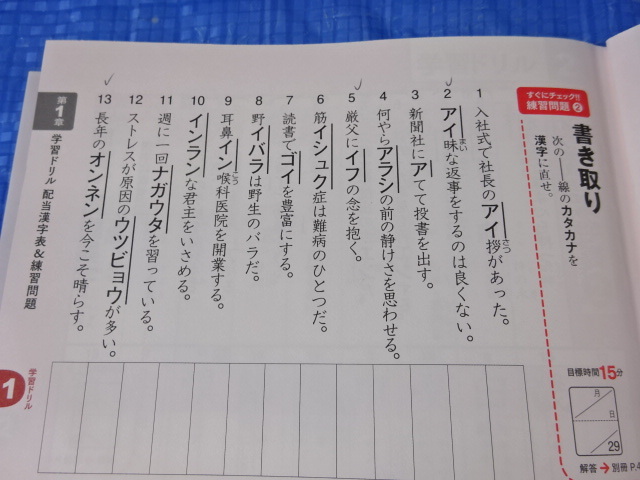 すぐにチェック!!
練習問題❷
書き取り
次の──線のカタカナを
漢字に直せ。
1 入社式で社長のアイ拶があった。
さつ
2 アイ昧な返事をするのは良くない。
まい
3 新聞社にアてて投書を出す。
4 何やらアラシの前の静けさを思わせる。
5 厳父にイフの念を抱く。
6 筋イシュク症は難病のひとつだ。
7 読書でゴイを豊富にする。
8 野イバラは野生のバラだ。
9 耳鼻イン喉科医院を開業する。
こう
10 インランな君主をいさめる。
11 週に一回ナガウタを習っている。
12 ストレスが原因のウツビョウが多い。
13 長年のオンネンを今こそ晴らす。
目標時間15分
月
日
29
解答➔別冊P.4
第1章
学習ドリル 配当漢字表&練習問題
学習ドリル
1